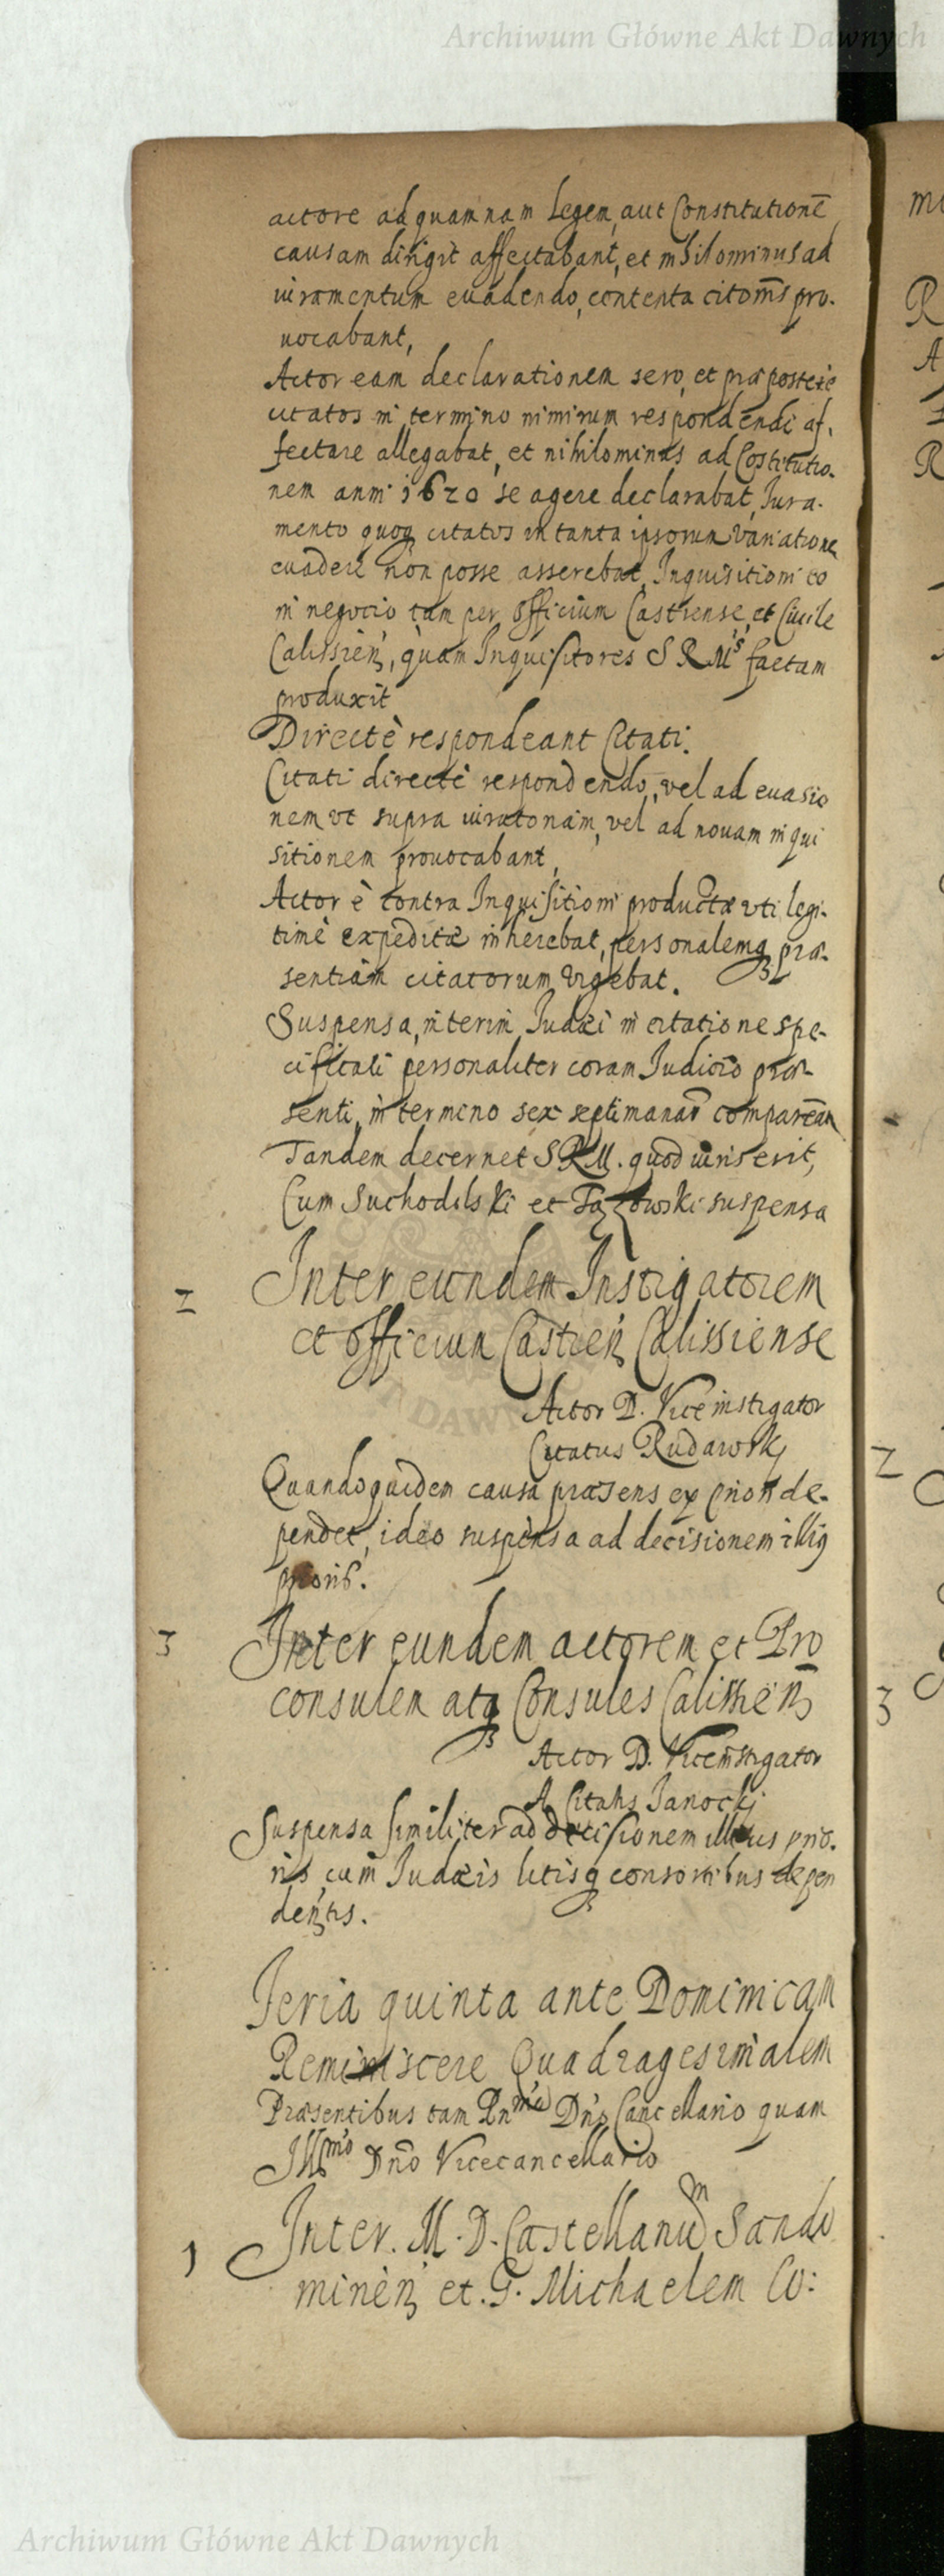 Archiwum Główne Akt Dawnych
actore ad quamnam Legem, aut Constitutionē
causam dirigit affectabant, et nihilominus ad
iuramentum evadendo, contenta citōnis pro-
vocabant,
Actor eam declarationem sero, et præpostere
citatos in termino nimirum respondendi af-
fectare allegabat, et nihilominus ad Costitutio-
nem anni 1620 se agere declarabat, Jura-
mento quoq citatos in tanta ipsorum variatione
evadere non posse asserebat, Inquisitioni eo
in negocio tam per officium Castrense, et Civile
Calissien, quam Inquisitores S R Mis factam
produxit
Directè respondeant Citati.
Citati directè respondendo, vel ad evasio
nem vt supra iuratoriam, vel ad novam inqui
sitionem provocabant,
Actor è contra Inquisitioni productæ vti legi-
timè expeditæ inherebat, personalemq præ-
sentiam citatorum vrgebat.
Suspensa, interim Judæi in citatione spe-
cificati personaliter coram Judicio præ-
senti, in termino sex septimanar compareāt
Tandem decernet S R M. quod iuris erit,
Cum Suchodilski et suspensa
2 Inter eundem Instigatorem
et officium Castren Calissiense
Actor D. Viceinstigator
Citatus Rudawsky
Quandoquidem causa præsens ex priori de-
pendet, ideo suspensa ad decisionem illiq
prioris.
3 Inter eundem actorem et Pro
consulem atq Consules Calissien
Actor D. Viceinstigator
A Citatis Janocky
Suspensa similiter ad decisionem illius prio-
ris cum Judæis litisq consortibus depen
dentis.
Feria quinta ante Dominicam
Reminiscere Quadragesimalem
Præsentibus tam Rnmo Dno Cancellario quam
Illmo Dnō Vicecancellario
1 Inter. M. D. Castellanum Sando
minen et. G. Michaelem Co:
Archiwum Główne Akt Dawnych